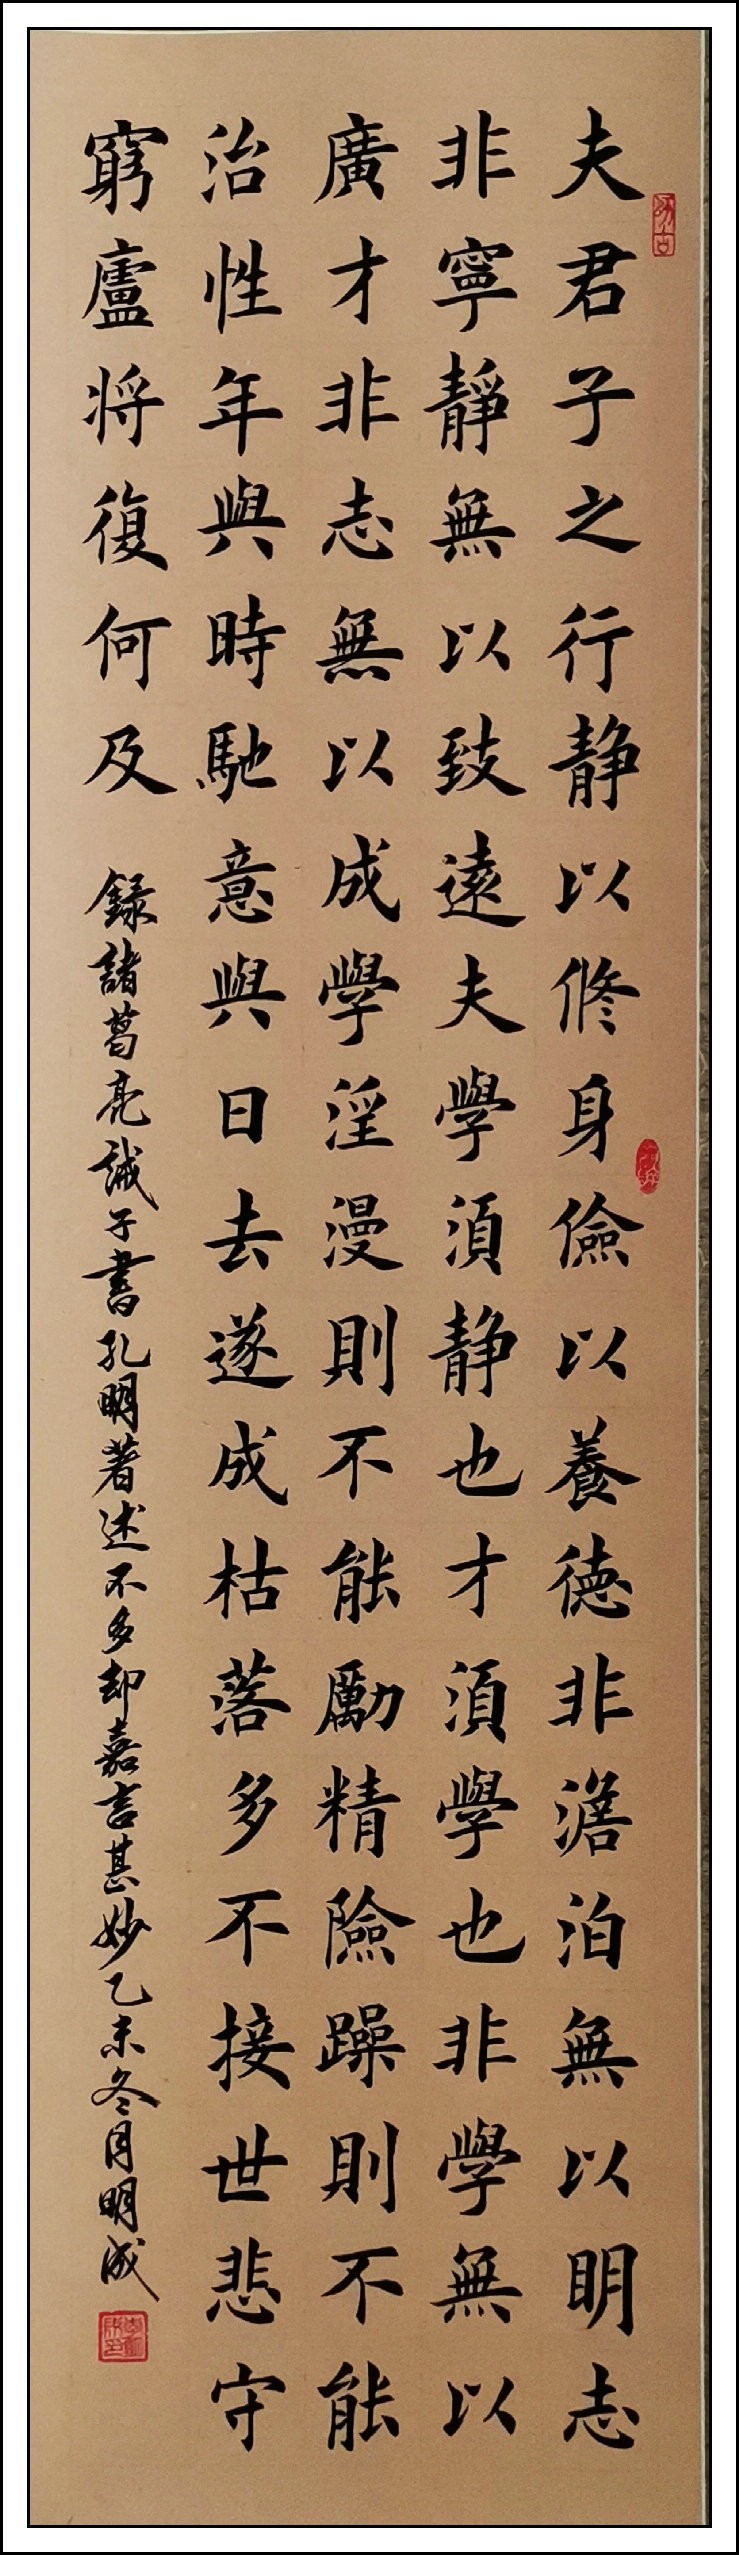 夫君子之行静以修身儉以養德非澹泊無以明志
非寧靜無以致遠夫學須静也才須學也非學無以
廣才非志無以成學淫漫則不能勵精險躁則不能
治性年與時馳意與日去遂成枯落多不接世悲守
窮廬将復何及
録諸葛亮誡子書孔明著述不多却嘉言甚妙乙未冬月明成